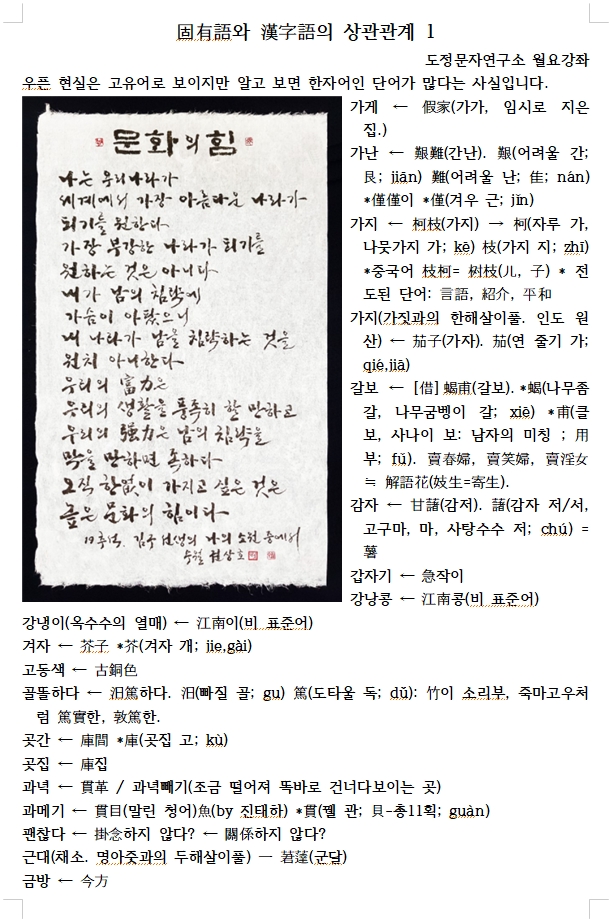 固有語와 漢字語의 상관관계 1
도정문자연구소 월요강좌
우픈 현실은 고유어로 보이지만 알고 보면 한자어인 단어가 많다는 사실입니다.
문화의힘
나는 우리나라가
세계에서 가장 아름다운 나라가
되기를 원한다
가장 부강한 나라가 되기를
원하는 것은 아니다
내가 남의 침략에
가슴이 아팠으니
내 나라가 남을 침략하는 것을
원치 아니한다
우리의 富力은
우리의 생활을 풍족히 할 만하고
우리의 強力은 남의 침략을
막을 만하면 족하다
오직 한없이 가지고 싶은 것은
높은 문화의 힘이다
김구 선생의 나의 소원 중에서
가게 ← 假家(가가, 임시로 지은
집.)
가난 ← 艱難(간난). 艱(어려울 간;
艮; jiān) 難(어려울 난; 隹; nán)
*僅僅이 *僅(겨우 근; jǐn)
가지 ← 柯枝(가지) → 柯(자루 가,
나뭇가지 가; kē) 枝(가지 지; zhī)
*중국어 枝柯= 树枝(儿, 子) * 전
도된 단어: 言語, 紹介, 平和
가지(가짓과의 한해살이풀. 인도 원
산) ← 茄子(가자). 茄(연 줄기 가;
qié,jiā)
갈보 ← [借] 蝎甫(갈보). *蝎(나무좀
갈, 나무굼벵이 갈; xiē) *甫(클
보, 사나이 보: 남자의 미칭 ; 用
부; fǔ). 賣春婦, 賣笑婦, 賣淫女
≒ 解語花(妓生=寄生).
감자 ← 甘藷(감저). 藷(감자 저/서,
고구마, 마, 사탕수수 저; chú) =
薯
갑자기 ← 急작이
강낭콩 ← 江南콩(비 표준어)
강냉이(옥수수의 열매) ← 江南이(비 표준어)
겨자 ← 芥子 *芥(겨자 개; jie,gài)
고동색 ← 古銅色
골똘하다 ← 汨篤하다. 汨(빠질 골; gu) 篤(도타울 독; dǔ): 竹이 소리부, 죽마고우처
럼 篤實한, 敦篤한.
곳간 ← 庫間 *庫(곳집 고; kù)
곳집 ← 庫집
과녁 ← 貫革 / 과녁빼기(조금 떨어져 똑바로 건너다보이는 곳)
과메기 ← 貫目(말린 청어)魚(by 진태하) *貫(꿸 관; 貝-총11획; guàn)
괜찮다 ← 掛念하지 않다? ← 關係하지 않다?
근대(채소. 명아줏과의 두해살이풀) ― 莙薘(군달)
금방 ← 今方